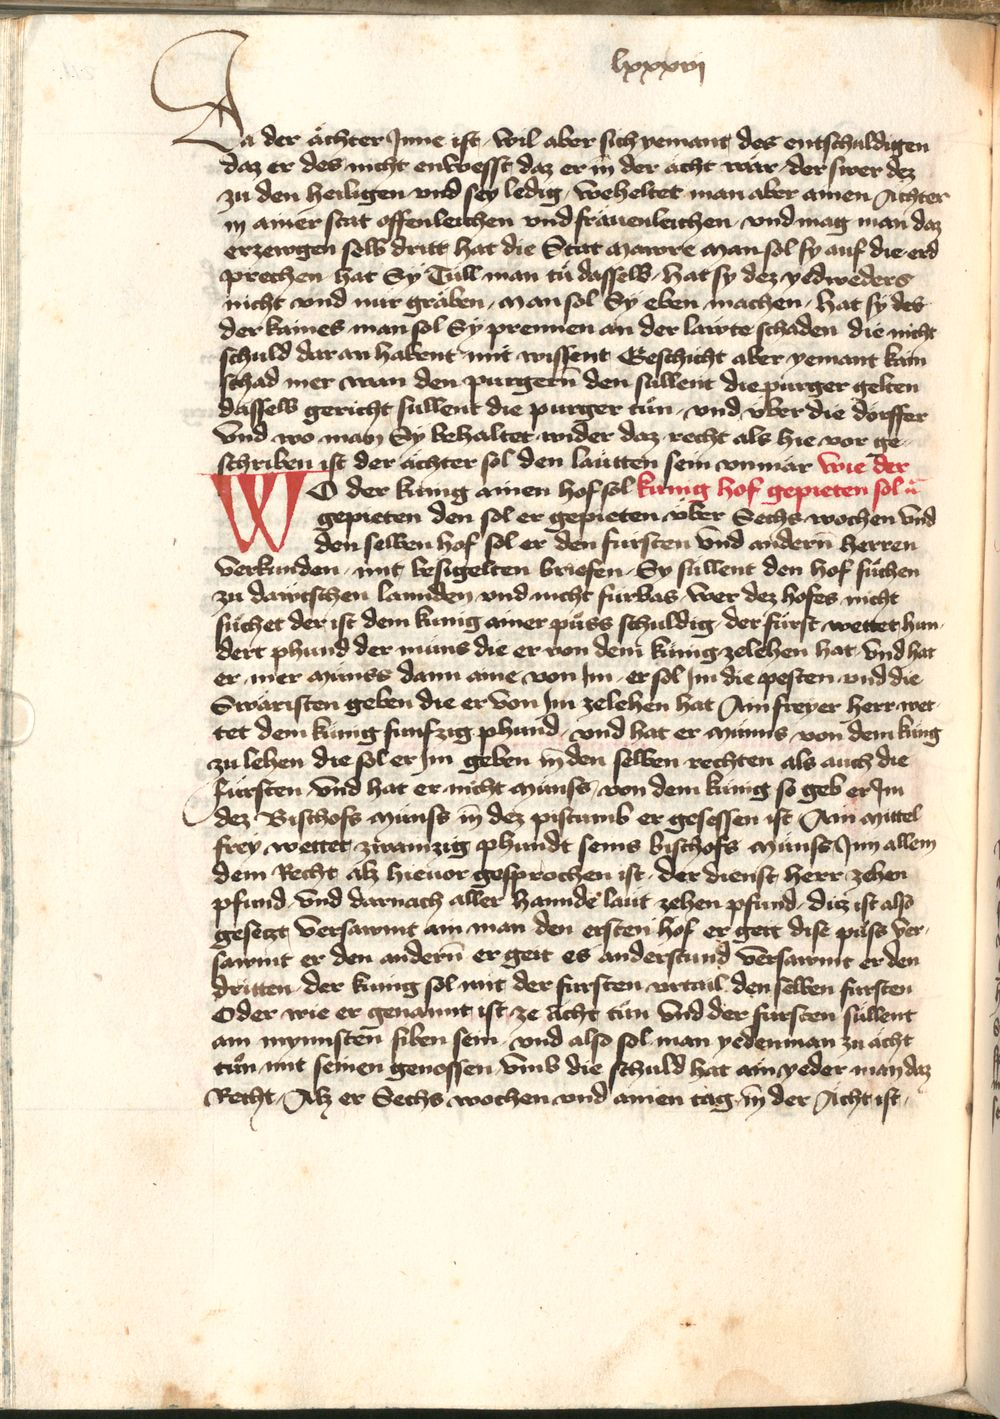 lxxxvij
Da der ächter Jnne ist wil aber sich yemant des entschuldigen
daz er des nicht enwesst daz er in der ächt wär der swer dez
zu den heiligen vnd sey ledig weheltet man aber ainen Achter
in ainer stat offenleichen vnd frauenleichen vnd mag man daz
erzewgen selb dritt hat die Stat Mawre man sol sy auf die erd
prechen hat Sy Tüll man tü dasselb hat sy dez yedweders
nicht vnd nur gräben man sol Sy eben machen hat sy des
der kaines man sol Sy prennen an der läwte schaden die nicht
schuld dar an habent mit wissent Geschicht aber yemant kain
schad mer wan den purgern den süllent die purger gelten
dasselb gericht süllent die purger tün vnd vber die dörffer
Vnd wo man Sy behaltet wider daz recht als hie vor ge¬
schriben ist der ächter sol den läutten sein vnmär wie der
WO der kunig ainen hof sol kunig hof gepieten sol
gepieten den sol er gepieten vber Sechs wochen vnd
den selben hof sol er den fürsten vnd andern herren
verkunden mit besigelten briefen Sy süllent den hof süchen
zu däwtschen lannden vnd nicht fürbas wer dez hofes nicht
süchet der ist dem kunig ainer püss schuldig der fürst wettet hun¬
dert phund der müns die er von dem kunig zelehen hat vnd hat
er mer Münss dann aine von Jm er sol Jm die pesten vnd die
Swäristen geben die er von Jm zelehen hat Ain freyer herr wet¬
tet dem kunig funfzig phund vnd hat er Münns von dem kunig
zu lehen die sol er Jm geben in den selben rechten als auch die
fürsten Vnd hat er nicht Münss von dem kunig so geb er Jm
dez Bischofs Münss in dez pistumb er gesessen ist Ain Mittel
frey wettet zwainzig phundt seins bischofs Münss Jnn allem
dem Recht alz hieuor gesprochen ist der dienst herr zehen
pfund Vnd darnach aller hannde läut zehen pfund ditz ist also
gesetzt Versawmt ain man den ersten hof er geit dise püss ver¬
sawmt er den andern er geit es anderstund Versawmt er den
dritten der kunig sol mit der fürsten vrtail den selben fürsten
Oder wie er genannt ist ze ächt tün Vnd der fürsten süllent
am mynnsten siben sein vnd also sol man yedenman zu ächt
tün mit seinen genossen vmb die schuld hat ain yeder man daz
Recht Alz er Sechs wochen vnd ainen tag in der Ächt ist